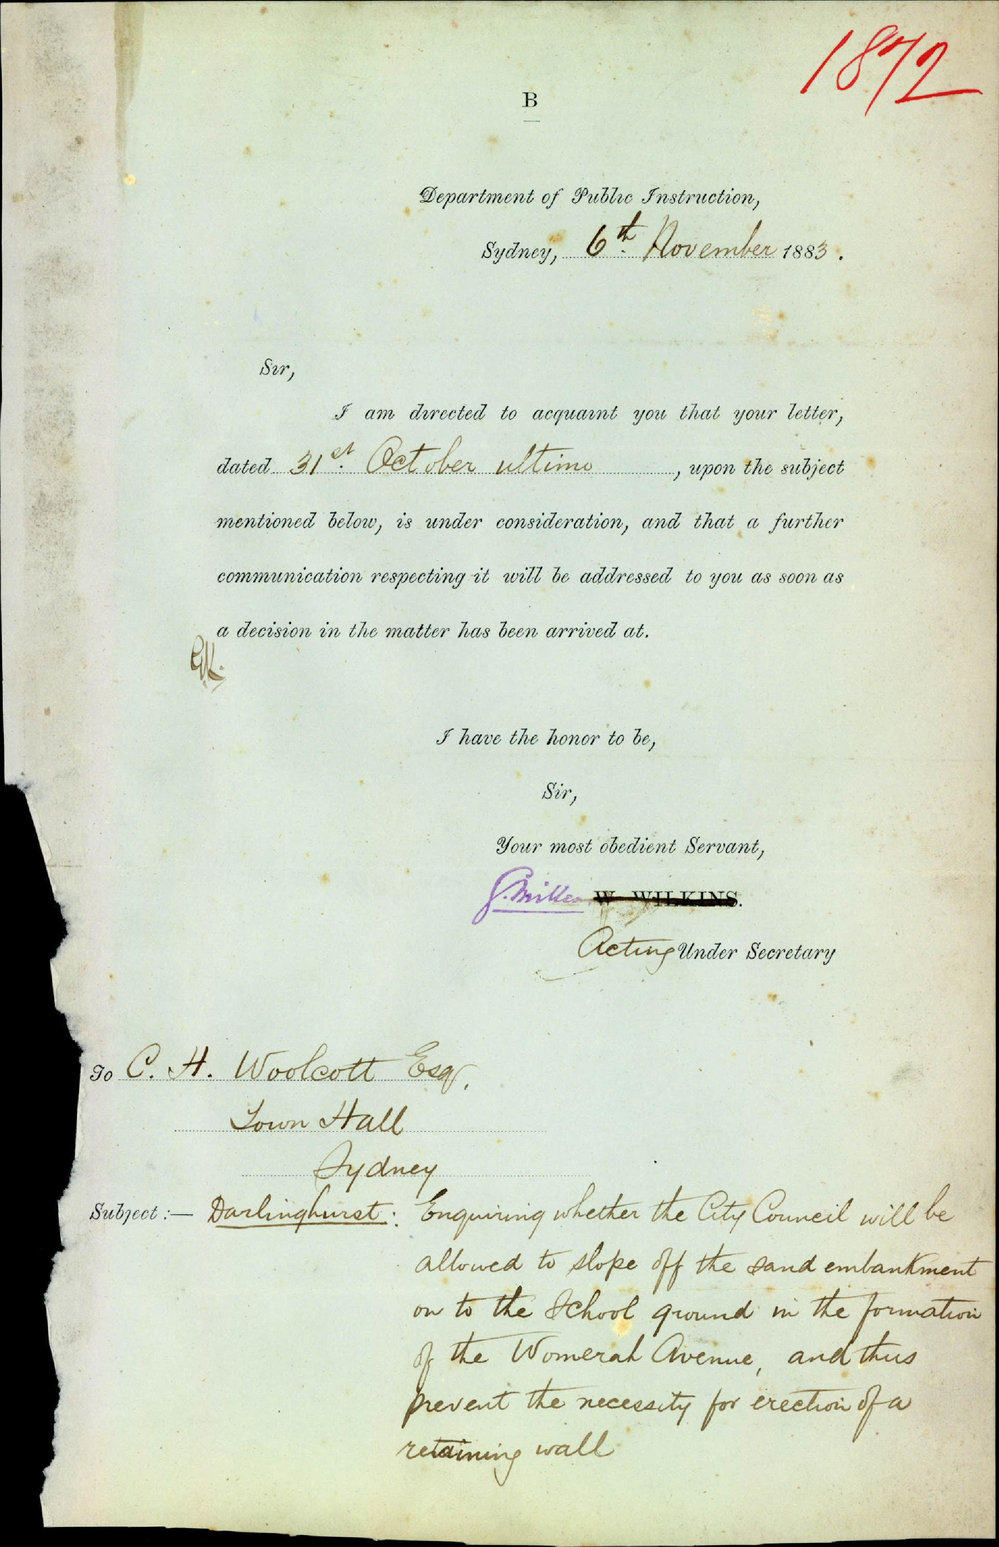 1872
B
Department of Public Instruction,
Sydney, 6th November 1883.
Sir,
I am directed to acquaint you that your letter,
dated 31st October ultimo, upon the subject
mentioned below, is under consideration, and that a further
communication respecting it will be addressed to you as soon as
a decision in the matter has been arrived at.
I have the honor to be,
Sir,
Your most obedient Servant,
G. Miller W. WILKINS.
Acting Under Secretary
To C. H. Woolcott Esq.
Town Hall
Sydney
Subject:— Darlinghurst: Enquiring whether the City Council will be
allowed to slope off the sand embankment
on to the School ground in the formation
of the Womerah Avenue, and thus
prevent the necessity for erection of a
retaining wall